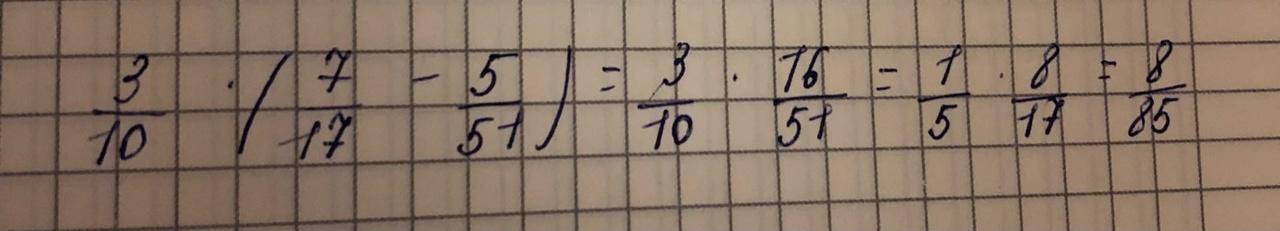 3/10 · (7/17 - 5/51) = 3/10 · 16/51 = 1/5 · 8/17 = 8/85